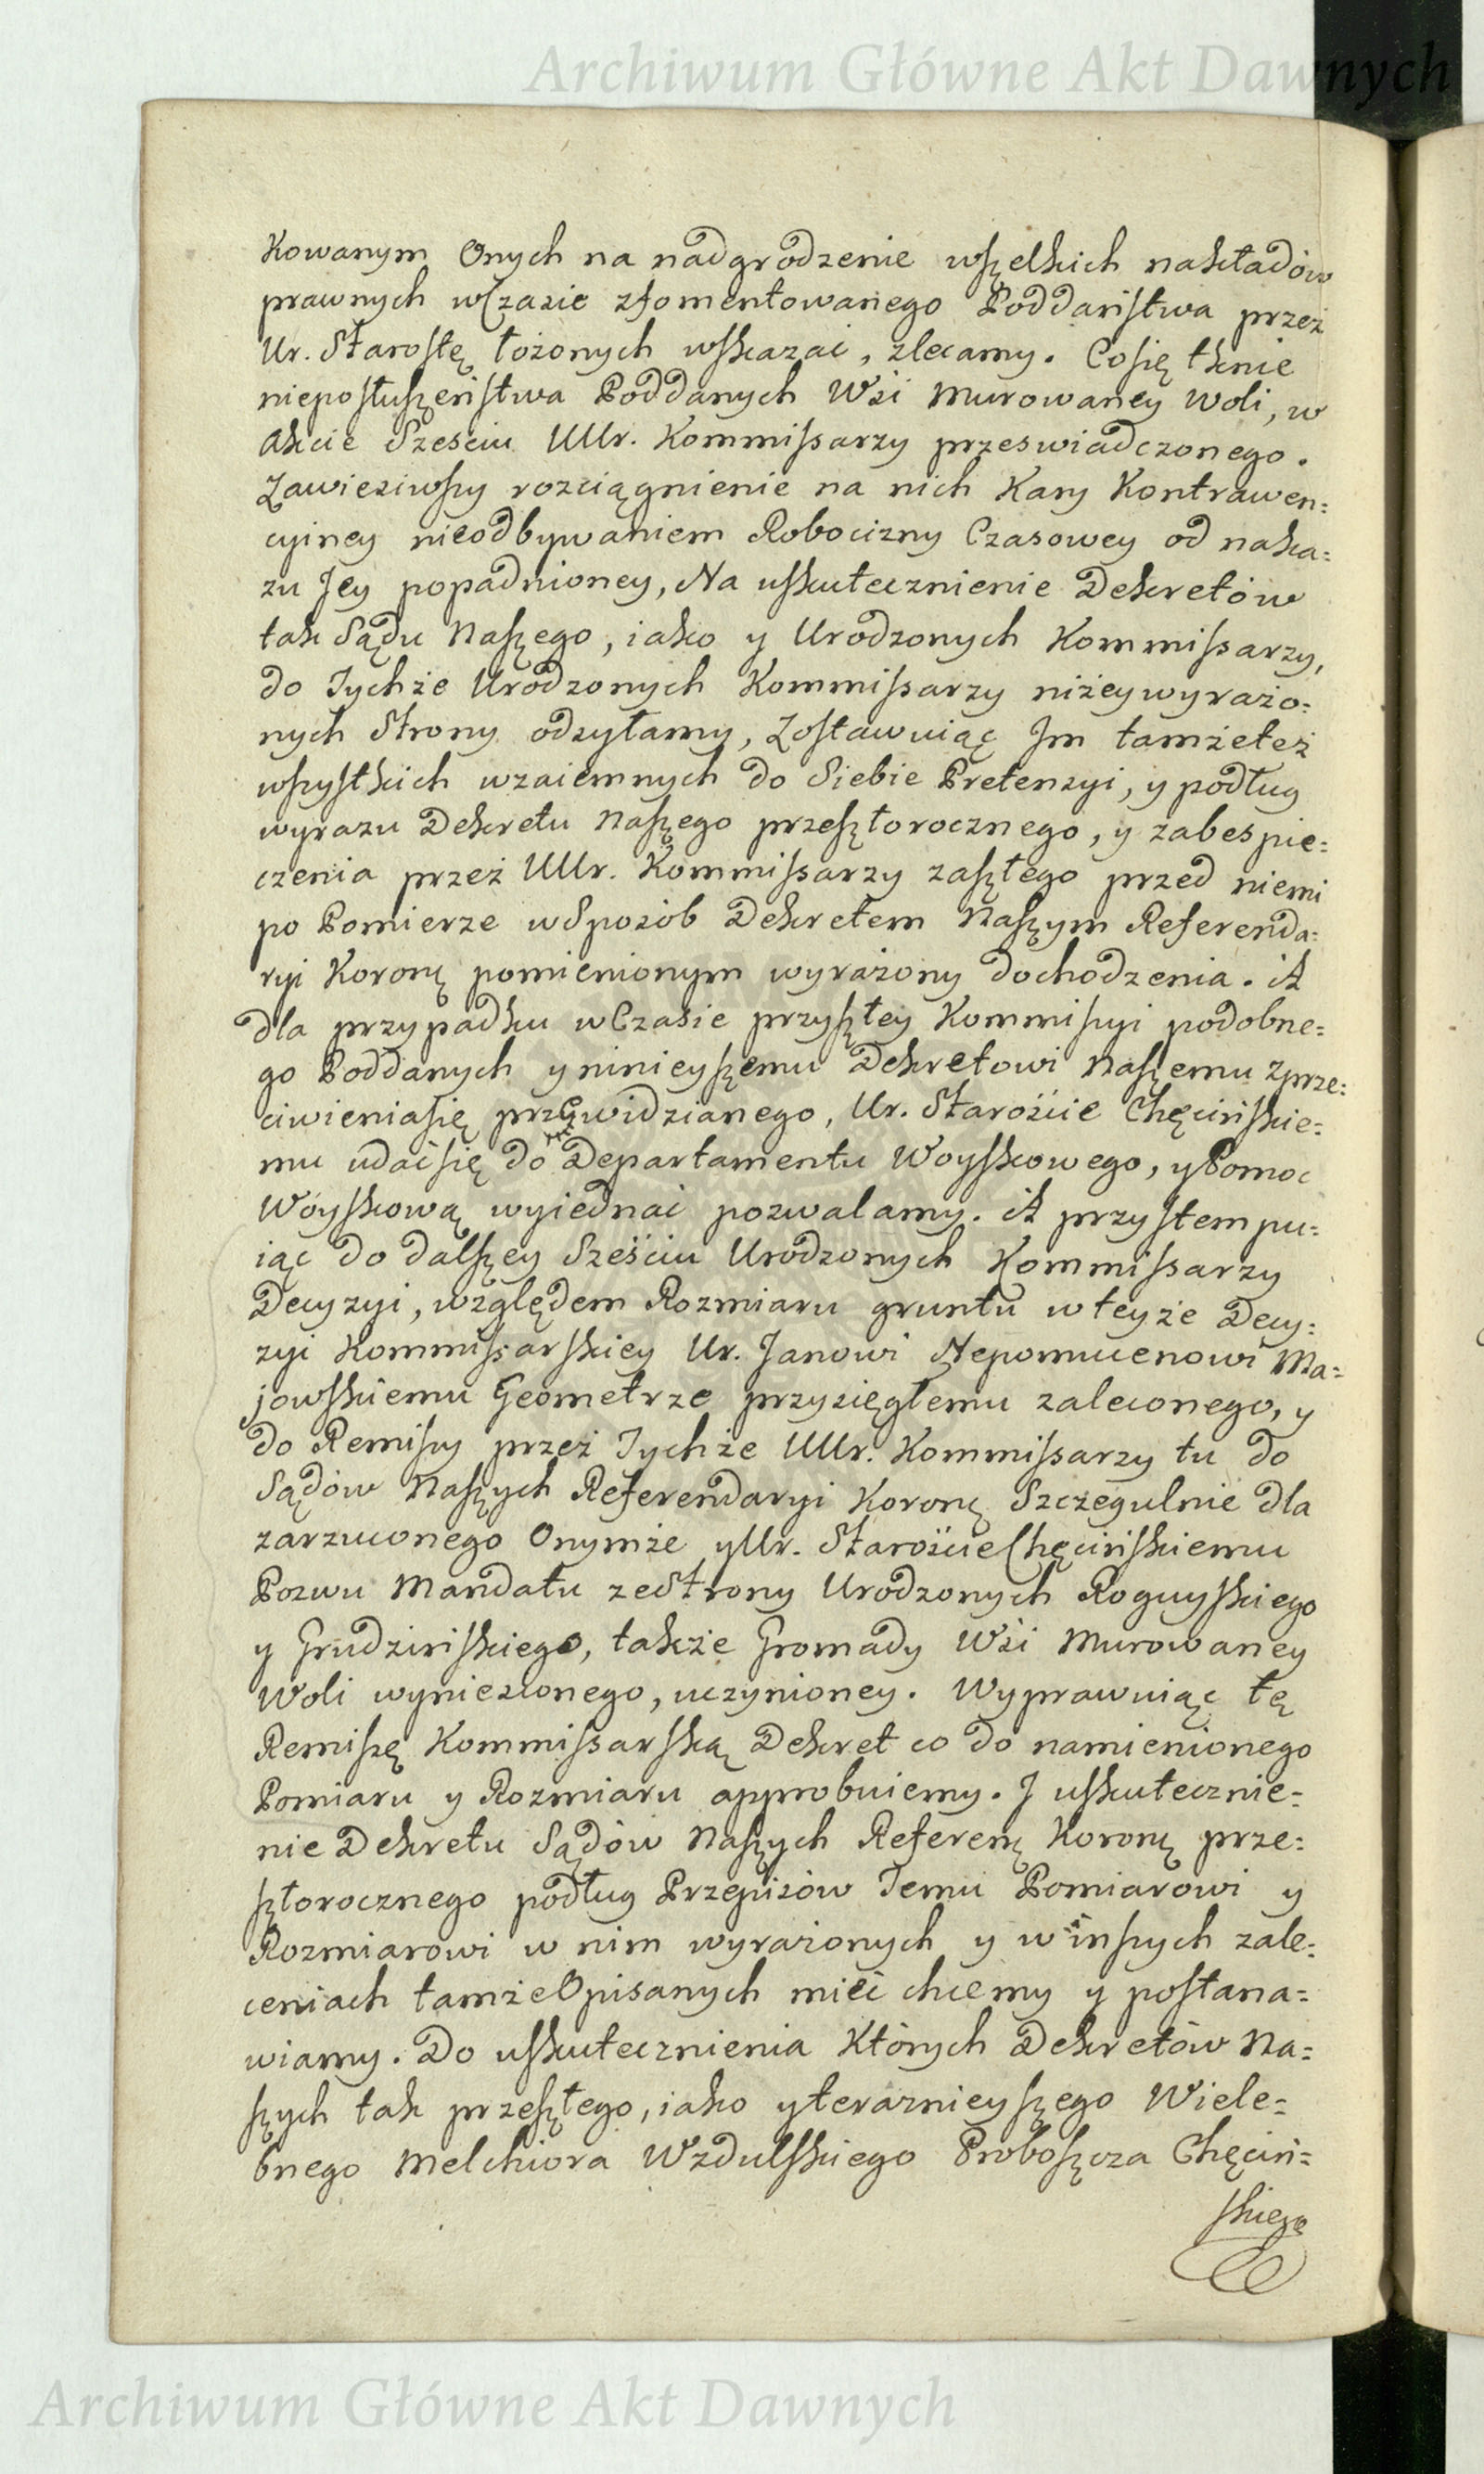 Archiwum Główne Akt Dawnych
kowanym Onych na nadgrodzenie wszelkich nakładów
prawnych w Czasie zfomentowanego Poddaństwa przez
Ur. Starostę łożonych wskazać, zlecamy. Co się tknie
nieposłuszeństwa Poddanych Wsi Murowaney Woli, w
Akcie Sześciu UUr. Kommissarzy przeswiadczonego.
Zawiesiwszy rozciągnienie na nich Kary Kontrawen=
cyiney nieodbywaniem Robocizny Czasowey od naka=
zu Jey popadnioney, Na uskutecznienie Dekretów
tak Sądu Naszego, iako y Urodzonych Kommissarzy,
do Tychże Urodzonych Kommissarzy niżey wyrażo=
nych Strony odsyłamy, Zostawuiąc Im tamże też
wszystkich wzaiemnych do Siebie Pretensyi, y podług
wyrazu Dekretu Naszego przeszłorocznego, y zabespie=
czenia przez UUr. Kommissarzy zaszłego przed niemi
po Pomierze w Sposób Dekretem Naszym Referenda=
ryi Koronę pomienionym wyrażony dochodzenia. A
dla przypadku w Czasie przyszłey Kommissyi podobne=
go Poddanych y ninieyszemu Dekretowi Naszemu zprze=
ciwienia się przewidzianego, Ur. Starościе Chęcińskie=
mu udać się do Departamentu Woyskowego, y Pomoc
Woyskową wyiednać pozwalamy. A przystempu=
iąc do dalszey Sześciu Urodzonych Kommissarzy
Decyzyi, względem Rozmiaru gruntu w teyże Decy=
zyi Kommissarskiey Ur. Janowi Nepomucenowi Ma=
jowskiemu Geometrze przysięgłemu zaleconego, y
do Remissy przez Tychże UUr. Kommissarzy tu do
Sądów Naszych Referendaryi Koronę Szczegulnie dla
zarzuconego Onymże y Ur. Starościе Chęcińskiemu
Pozwu Mandatu ze Strony Urodzonych Roguyskiego
y Grudzińskiego, także Gromady Wsi Murowaney
Woli wyniesionego, uczynioney. Wyprawuiąc tę
Remissę Kommissarską Dekret co do namienionego
Pomiaru y Rozmiaru approbuiemy. I uskutecznie=
nie Dekretu Sądów Naszych Referenę Koronę prze=
szłorocznego podług Przepisów Temu Pomiarowi y
Rozmiarowi w nim wyrażonych y w inszych zale=
ceniach tamże Opisanych mieć chcemy y postana=
wiamy. Do uskutecznienia Których Dekretów Na=
szych tak przeszłego, iako y teraznieyszego Wiele=
bnego Melchiora Wzdulskiego Proboszcza Chęciń=
skiego
Archiwum Główne Akt Dawnych